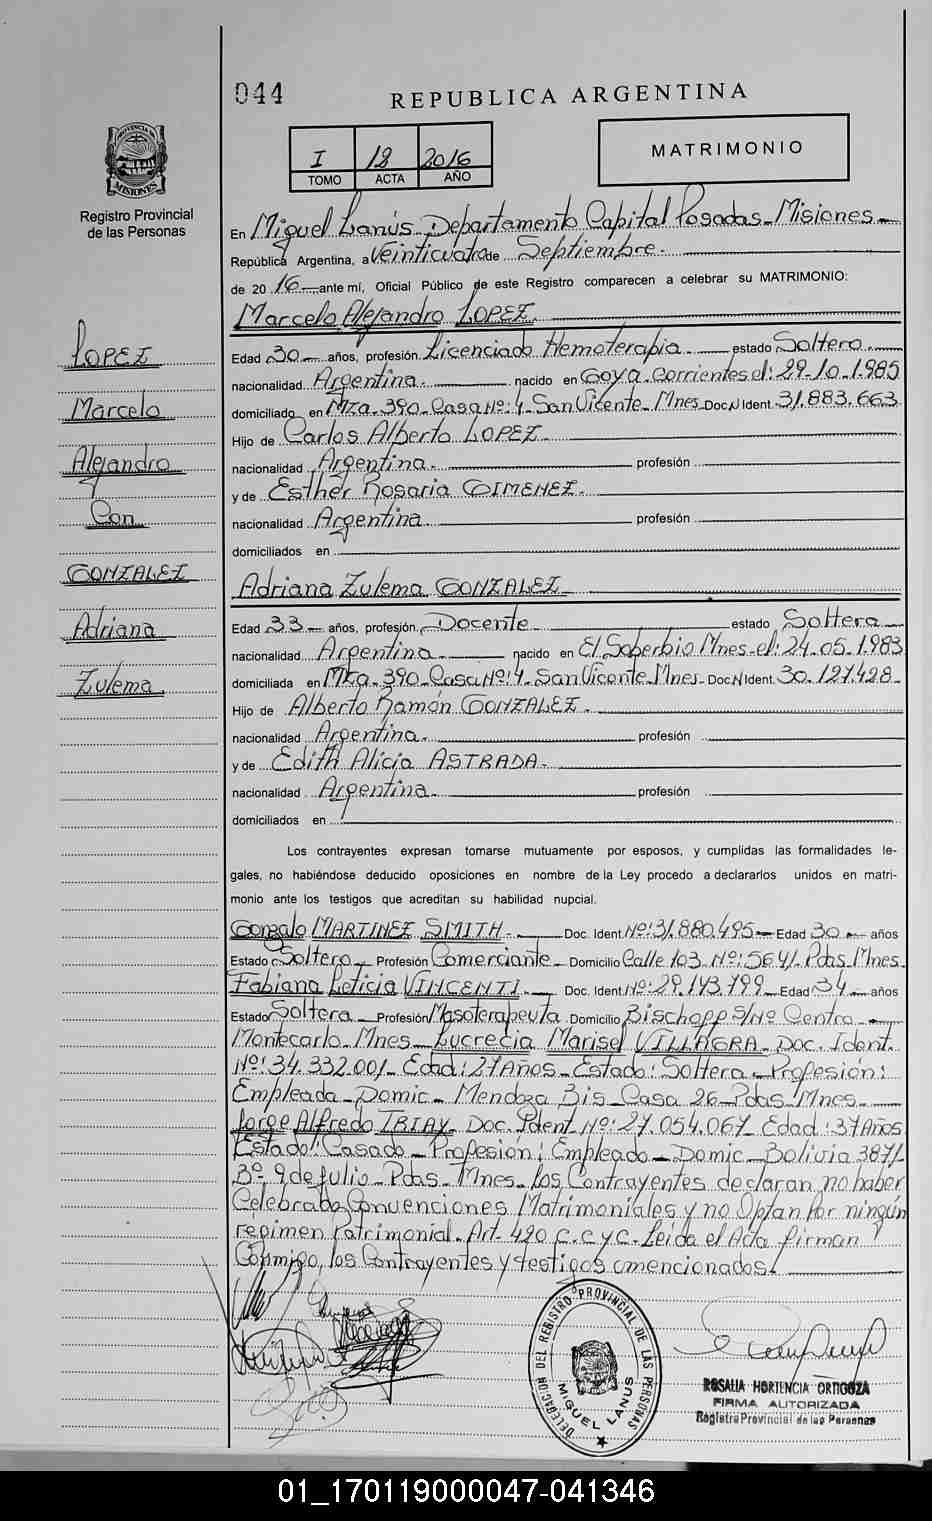 044
REPUBLICA ARGENTINA
I 18 2016
TOMO ACTA AÑO
MATRIMONIO
PROVINCIA DE
MISIONES
Registro Provincial
de las Personas
En Miguel Lanús - Departamento Capital Posadas - Misiones -
República Argentina, a Veinticuatro de Septiembre.
de 2016 ante mí, Oficial Público de este Registro comparecen a celebrar su MATRIMONIO:
Marcelo Alejandro LOPEZ.
Edad 30 años, profesión Licenciado Hemoterapia. estado Soltero.
nacionalidad Argentina. nacido en Goya Corrientes el: 29-10-1.985
domiciliado en Mza-390-Casa Nº: 4-San Vicente-Mnes Doc. Ident. 31.883.663
Hijo de Carlos Alberto LOPEZ.
nacionalidad Argentina. profesión
y de Esther Rosaria GIMENEZ.
nacionalidad Argentina. profesión
domiciliados en
LOPEZ
Marcelo
Alejandro
Con
GONZALEZ
Adriana
Zulema
Adriana Zulema GONZALEZ
Edad 33 años, profesión Docente estado Soltera
nacionalidad Argentina nacido en El Soberbio Mnes-el: 24-05-1.983
domiciliada en Mza-390-Casa Nº: 4-San Vicente-Mnes- Doc. Ident. 30.127.428-
Hijo de Alberto Ramón GONZALEZ.
nacionalidad Argentina. profesión
y de Edith Alicia ASTRADA.
nacionalidad Argentina. profesión
domiciliados en
Los contrayentes expresan tomarse mutuamente por esposos, y cumplidas las formalidades le-
gales, no habiéndose deducido oposiciones en nombre de la Ley procedo a declararlos unidos en matri-
monio ante los testigos que acreditan su habilidad nupcial.
Gonzalo MARTINEZ SMITH. Doc. Ident. Nº: 31.880.495 Edad 30 años
Estado Soltero Profesión Comerciante Domicilio Calle 103 Nº: 5641-Pdas Mnes.
Fabiana Leticia VINCENTI. Doc. Ident. Nº: 29.143.799 Edad 34 años
Estado Soltera Profesión Masoterapeuta Domicilio Bischopp S/Nº Centro
Montecarlo Mnes- Lucrecia Marisel VILLAGRA-Doc. Ident.
Nº: 34.332.001-Edad: 27 Años-Estado: Soltera-Profesión:
Empleada-Domic-Mendoza Bis-Casa 26-Pdas Mnes.
Jorge Alfredo TRIAY-Doc. Ident. Nº: 27.054.067-Edad: 37 Años
Estado: Casado-Profesión: Empleado-Domic-Bolivia 3871-
Bº-9 de Julio-Pdas-Mnes-los Contrayentes declaran no haber
Celebrado Convenciones Matrimoniales y no Optan Por ningún
regimen Patrimonial-Art-420 C.C y C. Leida el Acta firman
Conmigo, los Contrayentes y testigos mencionados.
DELEGACION DEL REGISTRO PROVINCIAL DE LAS PERSONAS
MIGUEL LANUS
ROSALIA HORTENCIA ORTIGOZA
FIRMA AUTORIZADA
Registro Provincial de las Personas
01_170119000047-041346